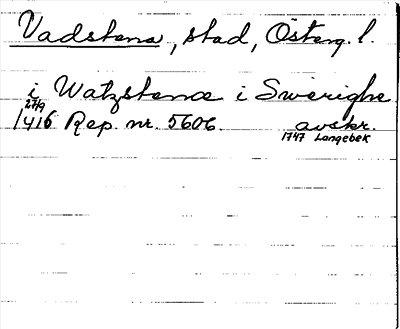 Vadstena, stad, Österg.l.
i Watzstenæ i Swerighe
27/9
1416 Rep. nr. 5606. avskr.
1747 Langebek